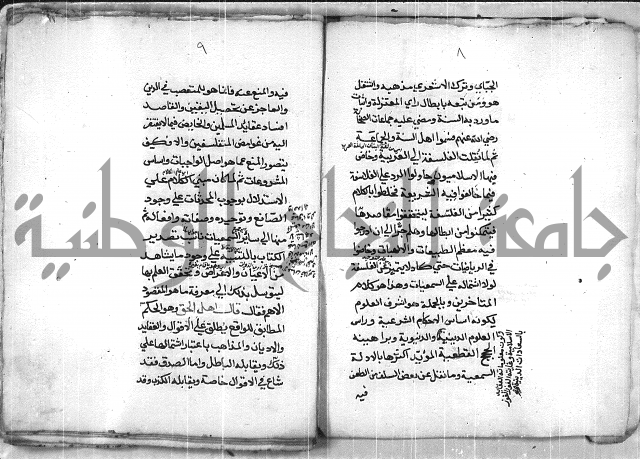 ٨
الجبائي وترك الاشعري مذهبه واشتغل
هو ومن تبعه بابطال راي المعتزلة واثبات
ما ورد به السنة ومضى عليه جماعة الصحابة
رضي الله عنهم فسموا اهل السنة والجماعة
ثم لما نقلت الفلسفة الى العربية وخاض
فيها الاسلاميون حاولوا الرد على الفلاسفة
فيما خالفوا فيه الشريعة فخلطوا بالكلام
كثيرا من الفلسفة ليتحققوا مقاصدها
فيتمكنوا من ابطالها وهلم جرا الى ان ادرجوا
فيه معظم الطبيعيات والالهيات وخاضوا
في الرياضيات حتى كاد لا يتميز عن الفلسفة
لولا اشتماله على السمعيات وهذا هو كلام
المتاخرين وبالجملة هو اشرف العلوم
لكونه اساس الاحكام الشرعية وراس
العلوم الدينية
وبراهينه
القطعية المؤيد اكثرها بالادلة
السمعية وما نقل عن بعض السلف من الطعن
فيه
٩
فيه والمنع عنه فانما هو للمتعصب في الدين
والعاجز عن تحصيل اليقين والقاصد
افساد عقايد المسلمين والخايض فيما لا يفتقر
اليه من غوامض المتفلسفين والا فكيف
يتصور المنع عما هو اصل الواجبات واساس
المشروعات ثم لما كان مبنى الكلام على
الاستدلال بوجود المحدثات على وجود
الصانع وتوحيده وصفاته وافعاله ثم
منها الى ساير السمعيات ناسب تصدير
الكتاب بالتنبيه على وجود ما يشاهد
من الاعيان والاعراض وتحقق العلم بها
ليتوسل بذلك الى معرفة ما هو المقصود
الاهم فقال قال اهل الحق وهو الحكم
المطابق للواقع يطلق على الاقوال والعقايد
والاديان والمذاهب باعتبار اشتمالها على
ذلك ويقابله الباطل واما الصدق فقد
شاع في الاقوال خاصة ويقابله الكذب وقد
جامعة النجاح الوطنية